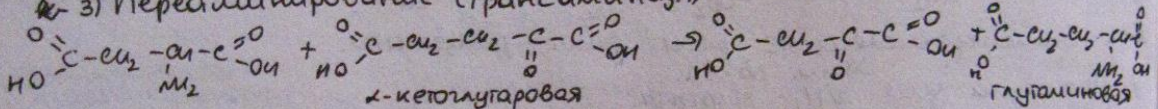 3) Переаминирование (трансаминаз
HO O C-CH2-CH-C O OH + O HO C-CH2-CH2-C-C O OH → O HO C-CH2-C-C O OH + O HO C-CH2-CH2-CH-C O OH
NH2 O O NH2
α-кетоглутаровая глутаминовая